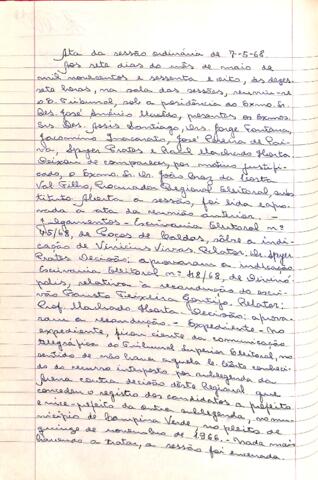 Ata da sessão ordinária de 7-5-68
Aos sete dias do mês de maio de
mil novecentos e sessenta e oito, às dezes-
sete horas, na sala das sessões, reuniu-se
o E. Tribunal, sob a presidência do Exmo. Sr.
Des. José Américo Macêdo, presentes os Exmos.
Srs. Des. Assis Santiago, Drs. Jorge Fontana,
Jacomino Inacarato, José Pereira de Pai-
va, Spyer Prates e Raul Machado Horta.
Deixou de comparecer, por motivo justifi-
cado, o Exmo. Sr. Dr. João Braz da Costa
Val Filho, Procurador Regional Eleitoral, subs-
tituto. Aberta a sessão, foi lida e apro-
vada a ata da reunião anterior. -
Julgamentos - Escrivania Eleitoral n.º
45/68, de Poços de Caldas, sôbre a indi-
cação de Vinicius Vivas. Relator: Dr. Spyer
Prates. Decisão: aprovaram a indicação.
Escrivania Eleitoral n.º 48/68, de Divinó-
polis, relativa à recondução do escri-
vão Fausto Teixeira Gontijo. Relator:
Prof. Machado Horta. Decisão: aprova-
ram a recondução. - Expediente - No
expediente, ficou ciente da comunicação
telegráfica do Tribunal Superior Eleitoral, no
sentido de não haver aquela E. Côrte conheci-
do do recurso interposto por sublegenda da
Arena contra decisão dêste Regional que
concedeu o registro dos candidatos a prefeito
e vice-prefeito da outra sublegenda, no mu-
nicípio de Campina Verde, no pleito de
quinze de novembro de 1966. - Nada mais
havendo a tratar, a sessão foi encerrada.